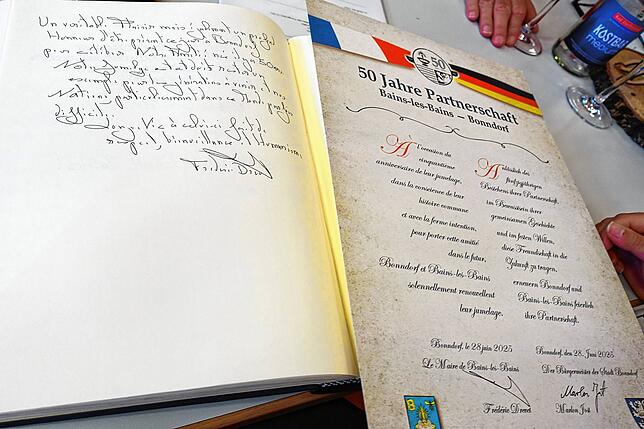 Un véritable Plaisir mais également un grand
Honneur d'être présent ce jour à Bonndorf
pour célébrer
50 ans.
Notre jumelage
exemple pour les générations à venir et nos
Nations, particulièrement dans ce Monde parfois
difficile.
Longue Vie à celui-ci fait de
respect, bienveillance et Humanisme
Frédéric Drevet
50
50 Jahre Partnerschaft
Bains-les-Bains – Bonndorf
A l'occasion du
cinquantième
anniversaire de leur jumelage,
dans la conscience de leur
histoire commune
et avec la ferme intention,
pour porter cette amitié
dans le futur.
Bonndorf et Bains-les-Bains
solennellement renouvellent
leur jumelage.
Anlässlich des
fünfzigjährigen
Bestehens ihrer Partnerschaft,
im Bewusstsein ihrer
gemeinsamen Geschichte
und im festen Willen,
diese Freundschaft in die
Zukunft zu tragen,
erneuern Bonndorf und
Bains-les-Bains feierlich
ihre Partnerschaft.
Bonndorf, le 28 juin 2025
Le Maire de Bains-les-Bains
Frédéric Drevet
Bonndorf, den 28. Juni 2025
Der Bürgermeister der Stadt Bonndorf
Marlon Jost
Marlon Jost
B